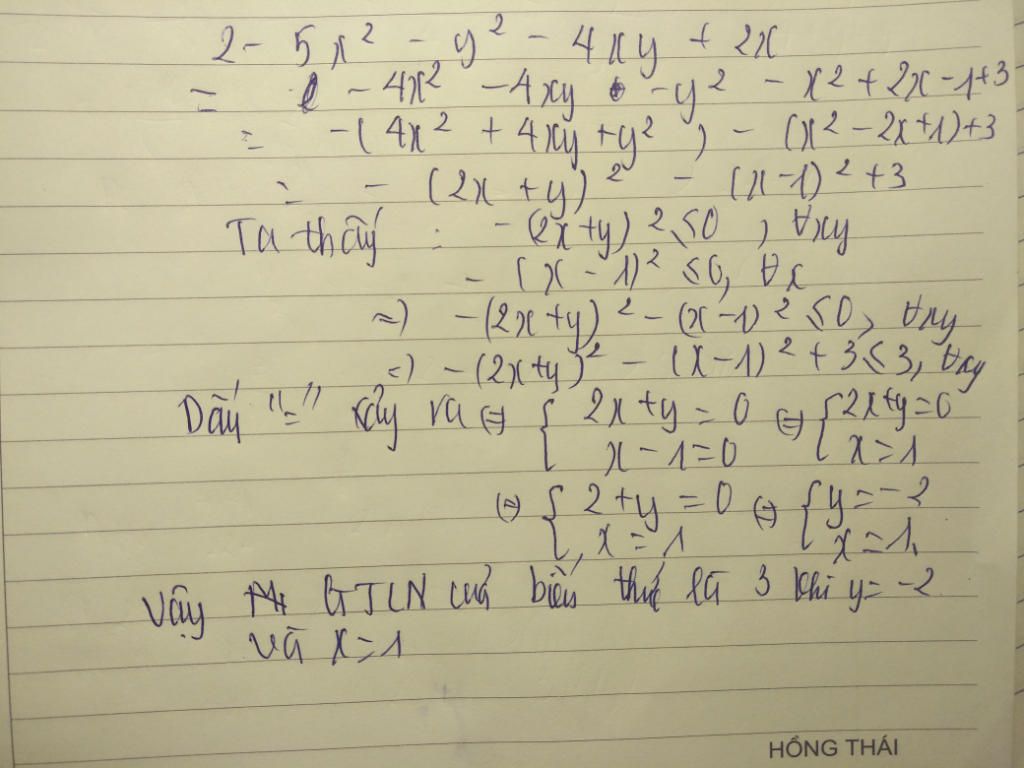 2 - 5x² - y² - 4xy + 2x
= - 4x² - 4xy - y² - x² + 2x - 1 + 3
= - (4x² + 4xy + y²) - (x² - 2x + 1) + 3
= - (2x + y)² - (x - 1)² + 3
Ta thấy : - (2x + y)² ≤ 0, ∀xy
- (x - 1)² ≤ 0, ∀x
=) - (2x + y)² - (x - 1)² ≤ 0, ∀xy
=) - (2x + y)² - (x - 1)² + 3 ≤ 3, ∀xy
Dấu "=" xảy ra (=) { 2x + y = 0 (=) { 2x + y = 0
x - 1 = 0 x = 1
(=) { 2 + y = 0 (=) { y = -2
x = 1 x = 1.
Vậy GTLN của biểu thức là 3 khi y = -2
và x = 1
HỒNG THÁI